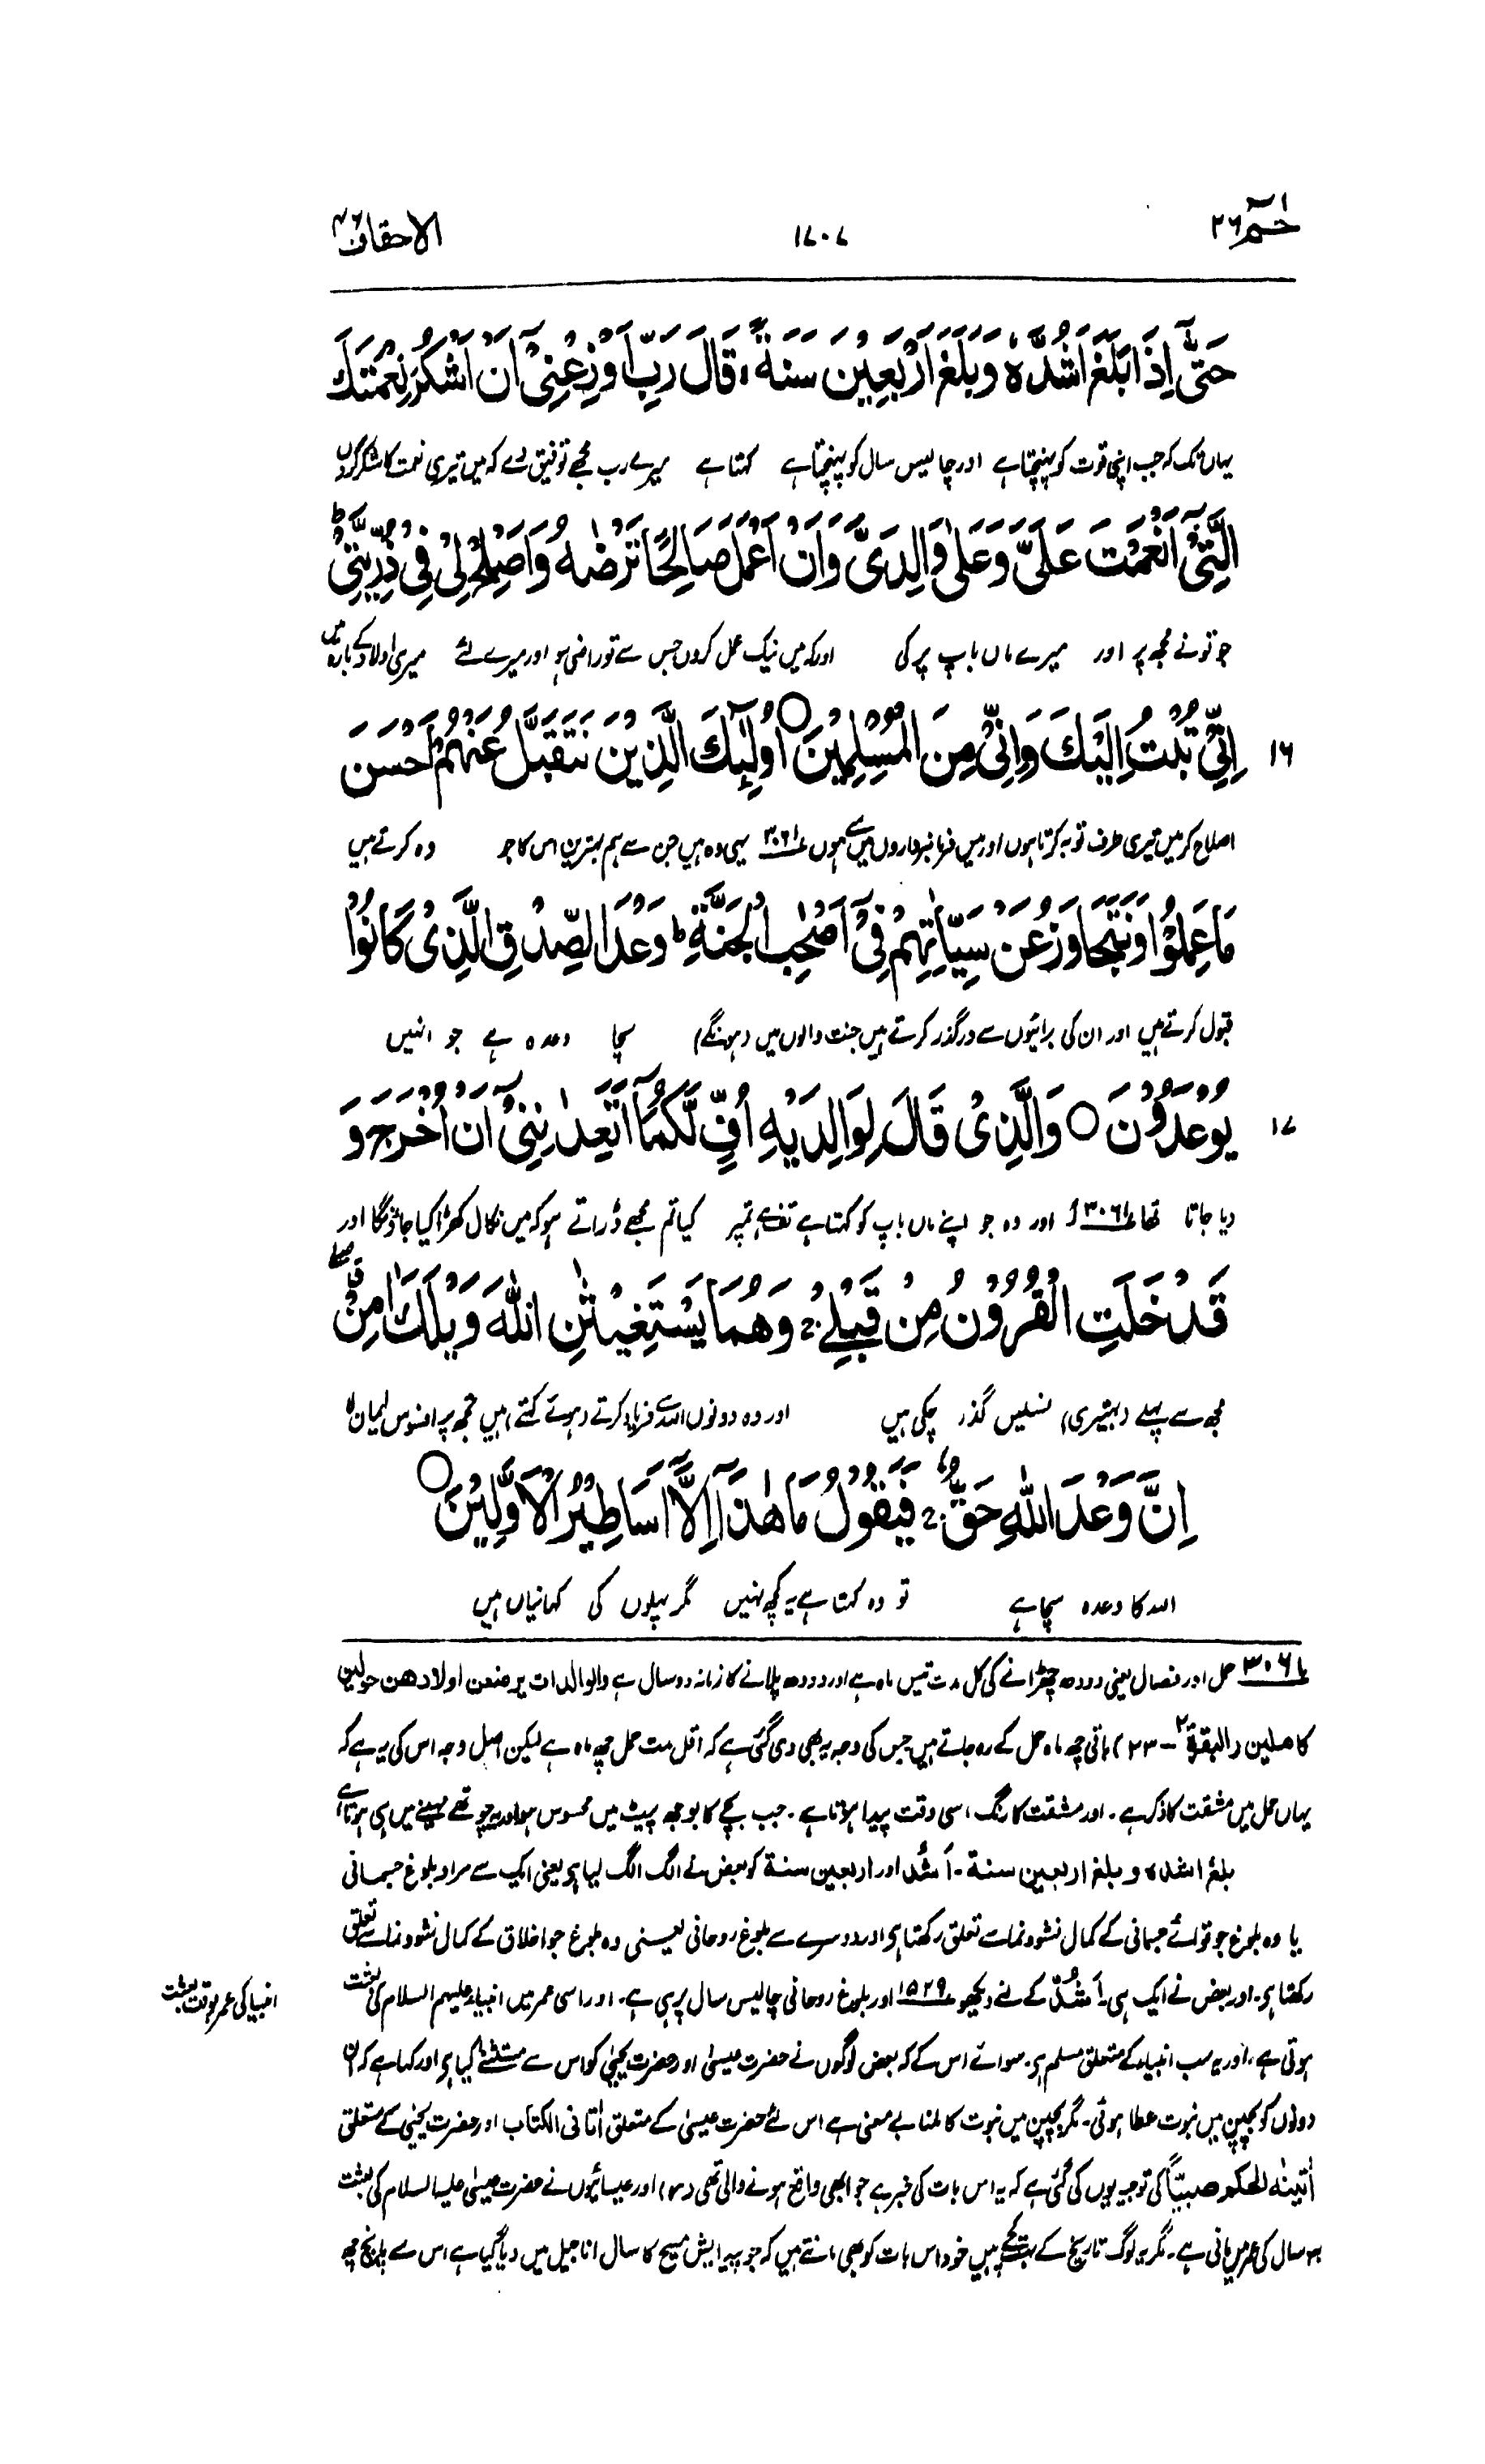 حٰمٓ ٢٦ ١٧٠٧ الاحقاف ٤٦
حَتّٰۤى اِذَا بَلَغَ اَشُدَّهٗ وَبَلَغَ اَرْبَعِيْنَ سَنَةً ۙ قَالَ رَبِّ اَوْزِعْنِيْۤ اَنْ اَشْكُرَ نِعْمَتَكَ
یہاں تک کہ جب اپنی قوت کو پہنچتا ہے اور چالیس سال کو پہنچتا ہے کہتا ہے میرے رب مجھے توفیق دے کہ میں تیری نعمت کا شکر کروں
الَّتِيْۤ اَنْعَمْتَ عَلَيَّ وَعَلٰى وَالِدَيَّ وَاَنْ اَعْمَلَ صَالِحًا تَرْضٰىهُ وَاَصْلِحْ لِيْ فِيْ ذُرِّيَّتِيْ ؕ
جو تو نے مجھ پر اور میرے ماں باپ پر کی اور کہ میں نیک عمل کروں جس سے تو راضی ہو اور میرے لئے میری اولاد کے بارہ میں
١٦ اِنِّيْ تُبْتُ اِلَيْكَ وَاِنِّيْ مِنَ الْمُسْلِمِيْنَ ○ اُولٰٓئِكَ الَّذِيْنَ نَتَقَبَّلُ عَنْهُمْ اَحْسَنَ
اصلاح کر میں تیری طرف توبہ کرتا ہوں اور میں فرمانبرداروں میں سے ہوں ٣٠٦١ یہی وہ ہیں جن سے ہم بہترین اس کا جو وہ کرتے ہیں
مَا عَمِلُوْا وَنَتَجَاوَزُ عَنْ سَيِّاٰتِهِمْ فِيْۤ اَصْحٰبِ الْجَنَّةِ ؕ وَعْدَ الصِّدْقِ الَّذِيْ كَانُوْا
قبول کرتے ہیں اور ان کی برائیوں سے درگذر کرتے ہیں جنت والوں میں (ہونگے) سچا وعدہ ہے جو انہیں
١٧ يُوْعَدُوْنَ ○ وَالَّذِيْ قَالَ لِوَالِدَيْهِ اُفٍّ لَّكُمَاۤ اَتَعِدٰنِنِيْۤ اَنْ اُخْرَجَ وَ
دیا جاتا تھا ٣٠٦١ا اور وہ جو اپنے ماں باپ کو کہتا ہے تف ہے تمپر کیا تم مجھے ڈراتے ہو کہ میں نکال کھڑا کیا جاؤنگا اور
قَدْ خَلَتِ الْقُرُوْنُ مِنْ قَبْلِيْ ۚ وَهُمَا يَسْتَغِيْثٰنِ اللّٰهَ وَيْلَكَ اٰمِنْ
مجھ سے پہلے (بہتیری) نسلیں گذر چکی ہیں اور وہ دونوں اللہ سے فریاد کرتے (ہوئے کہتے) ہیں تجھ پر افسوس ایمان لا
اِنَّ وَعْدَ اللّٰهِ حَقٌّ ۚ فَيَقُوْلُ مَا هٰذَاۤ اِلَّاۤ اَسَاطِيْرُ الْاَوَّلِيْنَ ○
اللہ کا وعدہ سچا ہے تو وہ کہتا ہے یہ کچھ نہیں مگر پہلوں کی کہانیاں ہیں
٣٠٦١ حمل اور فصال یعنی دودھ چھڑانے کی کل مدت تیس ماہ ہے اور دودھ پلانے کا زمانہ دو سال ہے والوالدات یرضعن اولادھن حولین
کاملین (البقرۃ ٢ - ٢٣) باقی چھ ماہ حمل کے رہ جاتے ہیں جس کی وجہ یہ بھی دی گئی ہے کہ اقل مدت حمل چھ ماہ ہے لیکن اصل وجہ اس کی یہ ہے کہ
یہاں حمل میں مشقت کا ذکر ہے۔ اور مشقت کا رنگ اسی وقت پیدا ہوتا ہے۔ جب بچے کا بوجھ پیٹ میں محسوس ہو اور یہ چوتھے مہینے میں ہی ہوتا ہے
بلغ اشدہ و بلغ اربعین سنۃ۔ اَشُد اور اربعین سنۃ کو بعض نے الگ الگ لیا ہے یعنی ایک سے مراد بلوغ جسمانی
یا وہ بلوغ جو قوائے جسمانی کے کمال نشو ونما سے تعلق رکھتا ہے اور دوسرے سے بلوغ روحانی یعنی وہ بلوغ جو اخلاق کے کمال نشو ونما سے تعلق
رکھتا ہے۔ اور بعض نے ایک ہی۔ اَشُدّ کے لئے دیکھو ١٥٢٩ اور بلوغ روحانی چالیس سال پر ہی ہے۔ اور اسی عمر میں انبیاء علیہم السلام کی بعثت
انبیا کی عمر بوقت بعثت
ہوتی ہے۔ اور یہ سب انبیاء کے متعلق مسلم ہے۔ سوائے اس کے کہ بعض لوگوں نے حضرت عیسیٰ اور حضرت یحییٰ کو اس سے مستثنےٰ کیا ہے اور کہا ہے کہ ان
دونوں کو بچپن میں نبوت عطا ہوئی۔ مگر بچپن میں نبوت کا ملنا بے معنی ہے اس لئے حضرت عیسیٰ کے متعلق اٰتانی الکتاب اور حضرت یحییٰ کے متعلق
اٰتینٰہ الحکم صبیّا کی توجیہ یوں کی گئی ہے کہ یہ اس بات کی خبر ہے جو ابھی واقع ہونے والی تھی (ر) اور عیسائیوں نے حضرت عیسیٰ علیہ السلام کی بعثت
٣٠ سال کی عمر میں مانی ہے۔ مگر یہ لوگ تاریخ کے بہت کچے ہیں خود اس بات کو بھی مانتے ہیں کہ جو پیدایش مسیح کا سال اناجیل میں دیا گیا ہے اس سے پانچ چھ